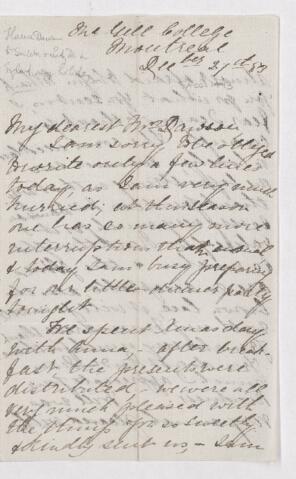 McGill College
Montreal
Dec
My dearest Mrs Dawson
I am sorry to be obliged
to write only a few lines
today, as I am very much
hurried; at this season
one has so many more
interruptions than usual
& today I am busy preparing
for our little dinner party
tonight
We spent Xmas day
with Anna, after break-
fast the presents were
distributed we were all
very much pleased with
the things you so sweetly
& kindly sent us, – I am